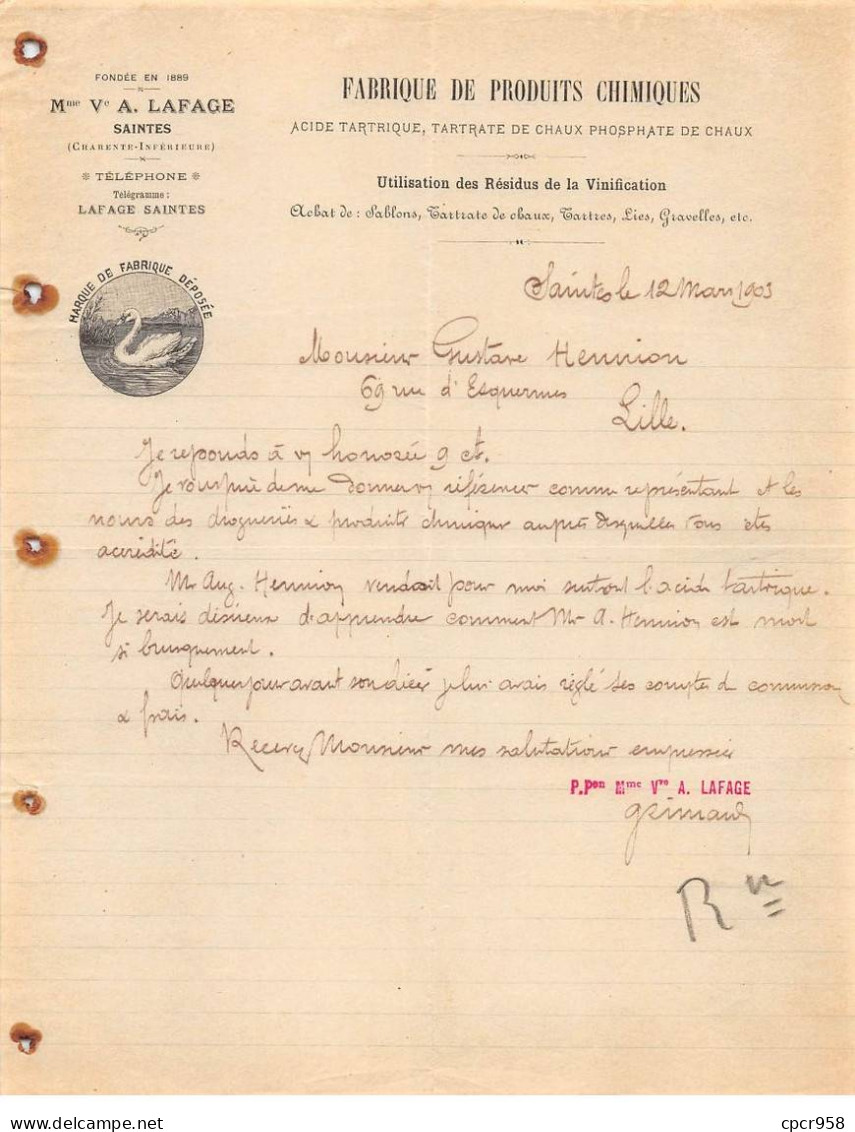 FONDÉE EN 1889
Mme Ve A. LAFAGE
SAINTES
(CHARENTE-INFÉRIEURE)
TÉLÉPHONE
Télégramme :
LAFAGE SAINTES
MARQUE DE FABRIQUE DÉPOSÉE
FABRIQUE DE PRODUITS CHIMIQUES
ACIDE TARTRIQUE, TARTRATE DE CHAUX PHOSPHATE DE CHAUX
Utilisation des Résidus de la Vinification
Achat de : Sablons, Tartrate de chaux, Tartres, Lies, Gravelles, etc.
Saintes le 12 Mars 1903
Monsieur Gustave Hennion
69 rue d'Esquermes
Lille.
Je reponds à v/ honorée 9 ct.
Je vous prie de me donner v/ références comme représentant et les
noms des drogueries & produits chimiques auprès desquelles vous êtes
accrédité.
Mr Aug. Hennion vendait pour moi surtout l'acide tartrique.
Je serais désireux d'apprendre comment Mr A. Hennion est mort
si brusquement.
Quelques jours avant son décès je lui avais réglé ses comptes de commission
& frais.
Recevez Monsieur mes salutations empressées
P.Pon Mme Vve A. LAFAGE
Grimaud
R
cpcr958